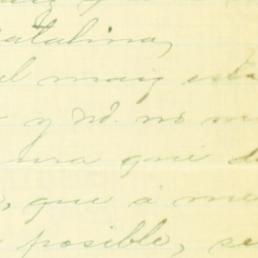 atalina,
el maiz esta
y Vd. no m
ura qué d
, que á me
posible, se